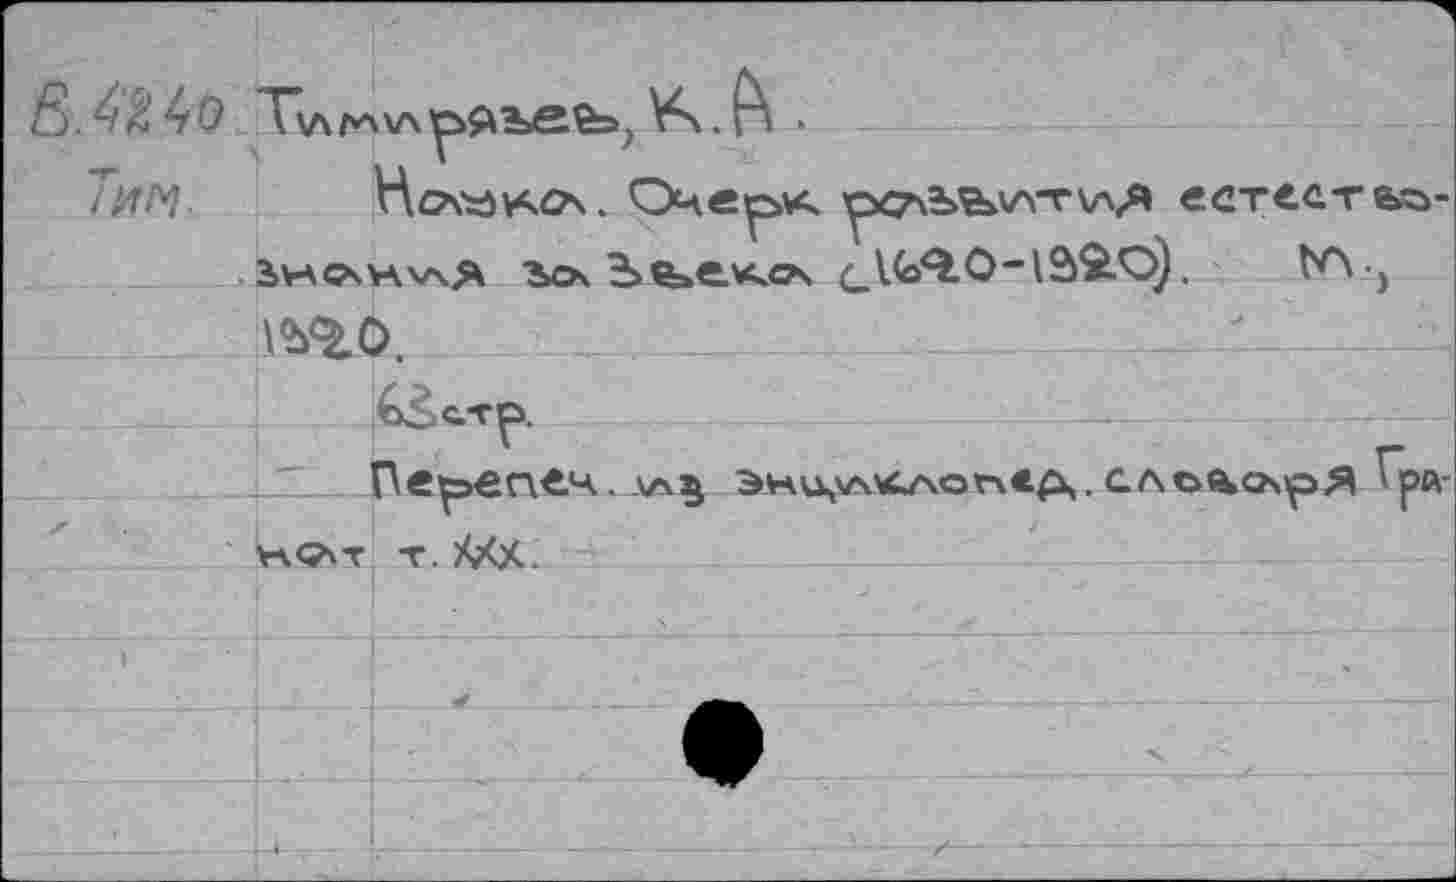 В.4240 Тимирязев, К.А.
Тим. Наука. Очерк развития естество-
знания за 3 века (1620-1920). М.,
1920.
63 стр.
Перепеч. из энциклопед. словаря Гра-
нат т. XXX.